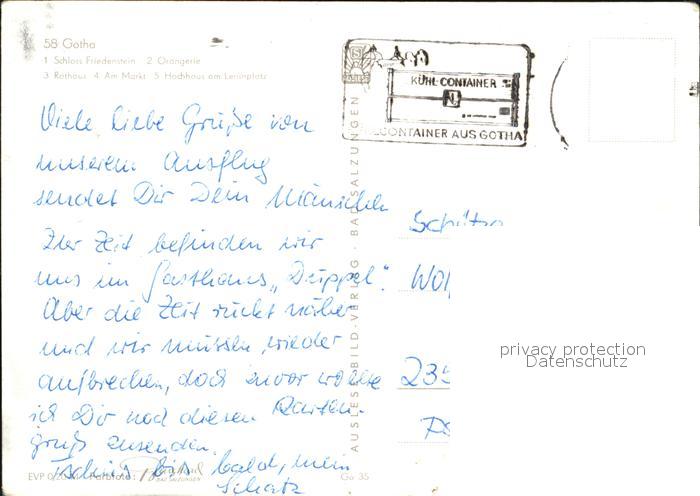 58 Gotha
1 Schloss Friedenstein 2 Orangerie
3 Rathaus 4 Am Markt 5 Hochhaus am Leninplatz
KÜHL-CONTAINER
CONTAINER AUS GOTHA
Viele liebe Grüße von
unserem Ausflug
sendet Dir Dein Mäuschen
Zur Zeit befinden wir
uns im Gasthaus „Düppel".
Aber die Zeit rückt näher
und wir müssen wieder
aufbrechen, doch zuvor wollte
ich Dir noch diesen Karten-
gruß zusenden.
Tschüß bis bald, mein
Schatz
AUSLESE-BILD-VERLAG · BAD SALZUNGEN
235
privacy protection
Datenschutz
Go 35